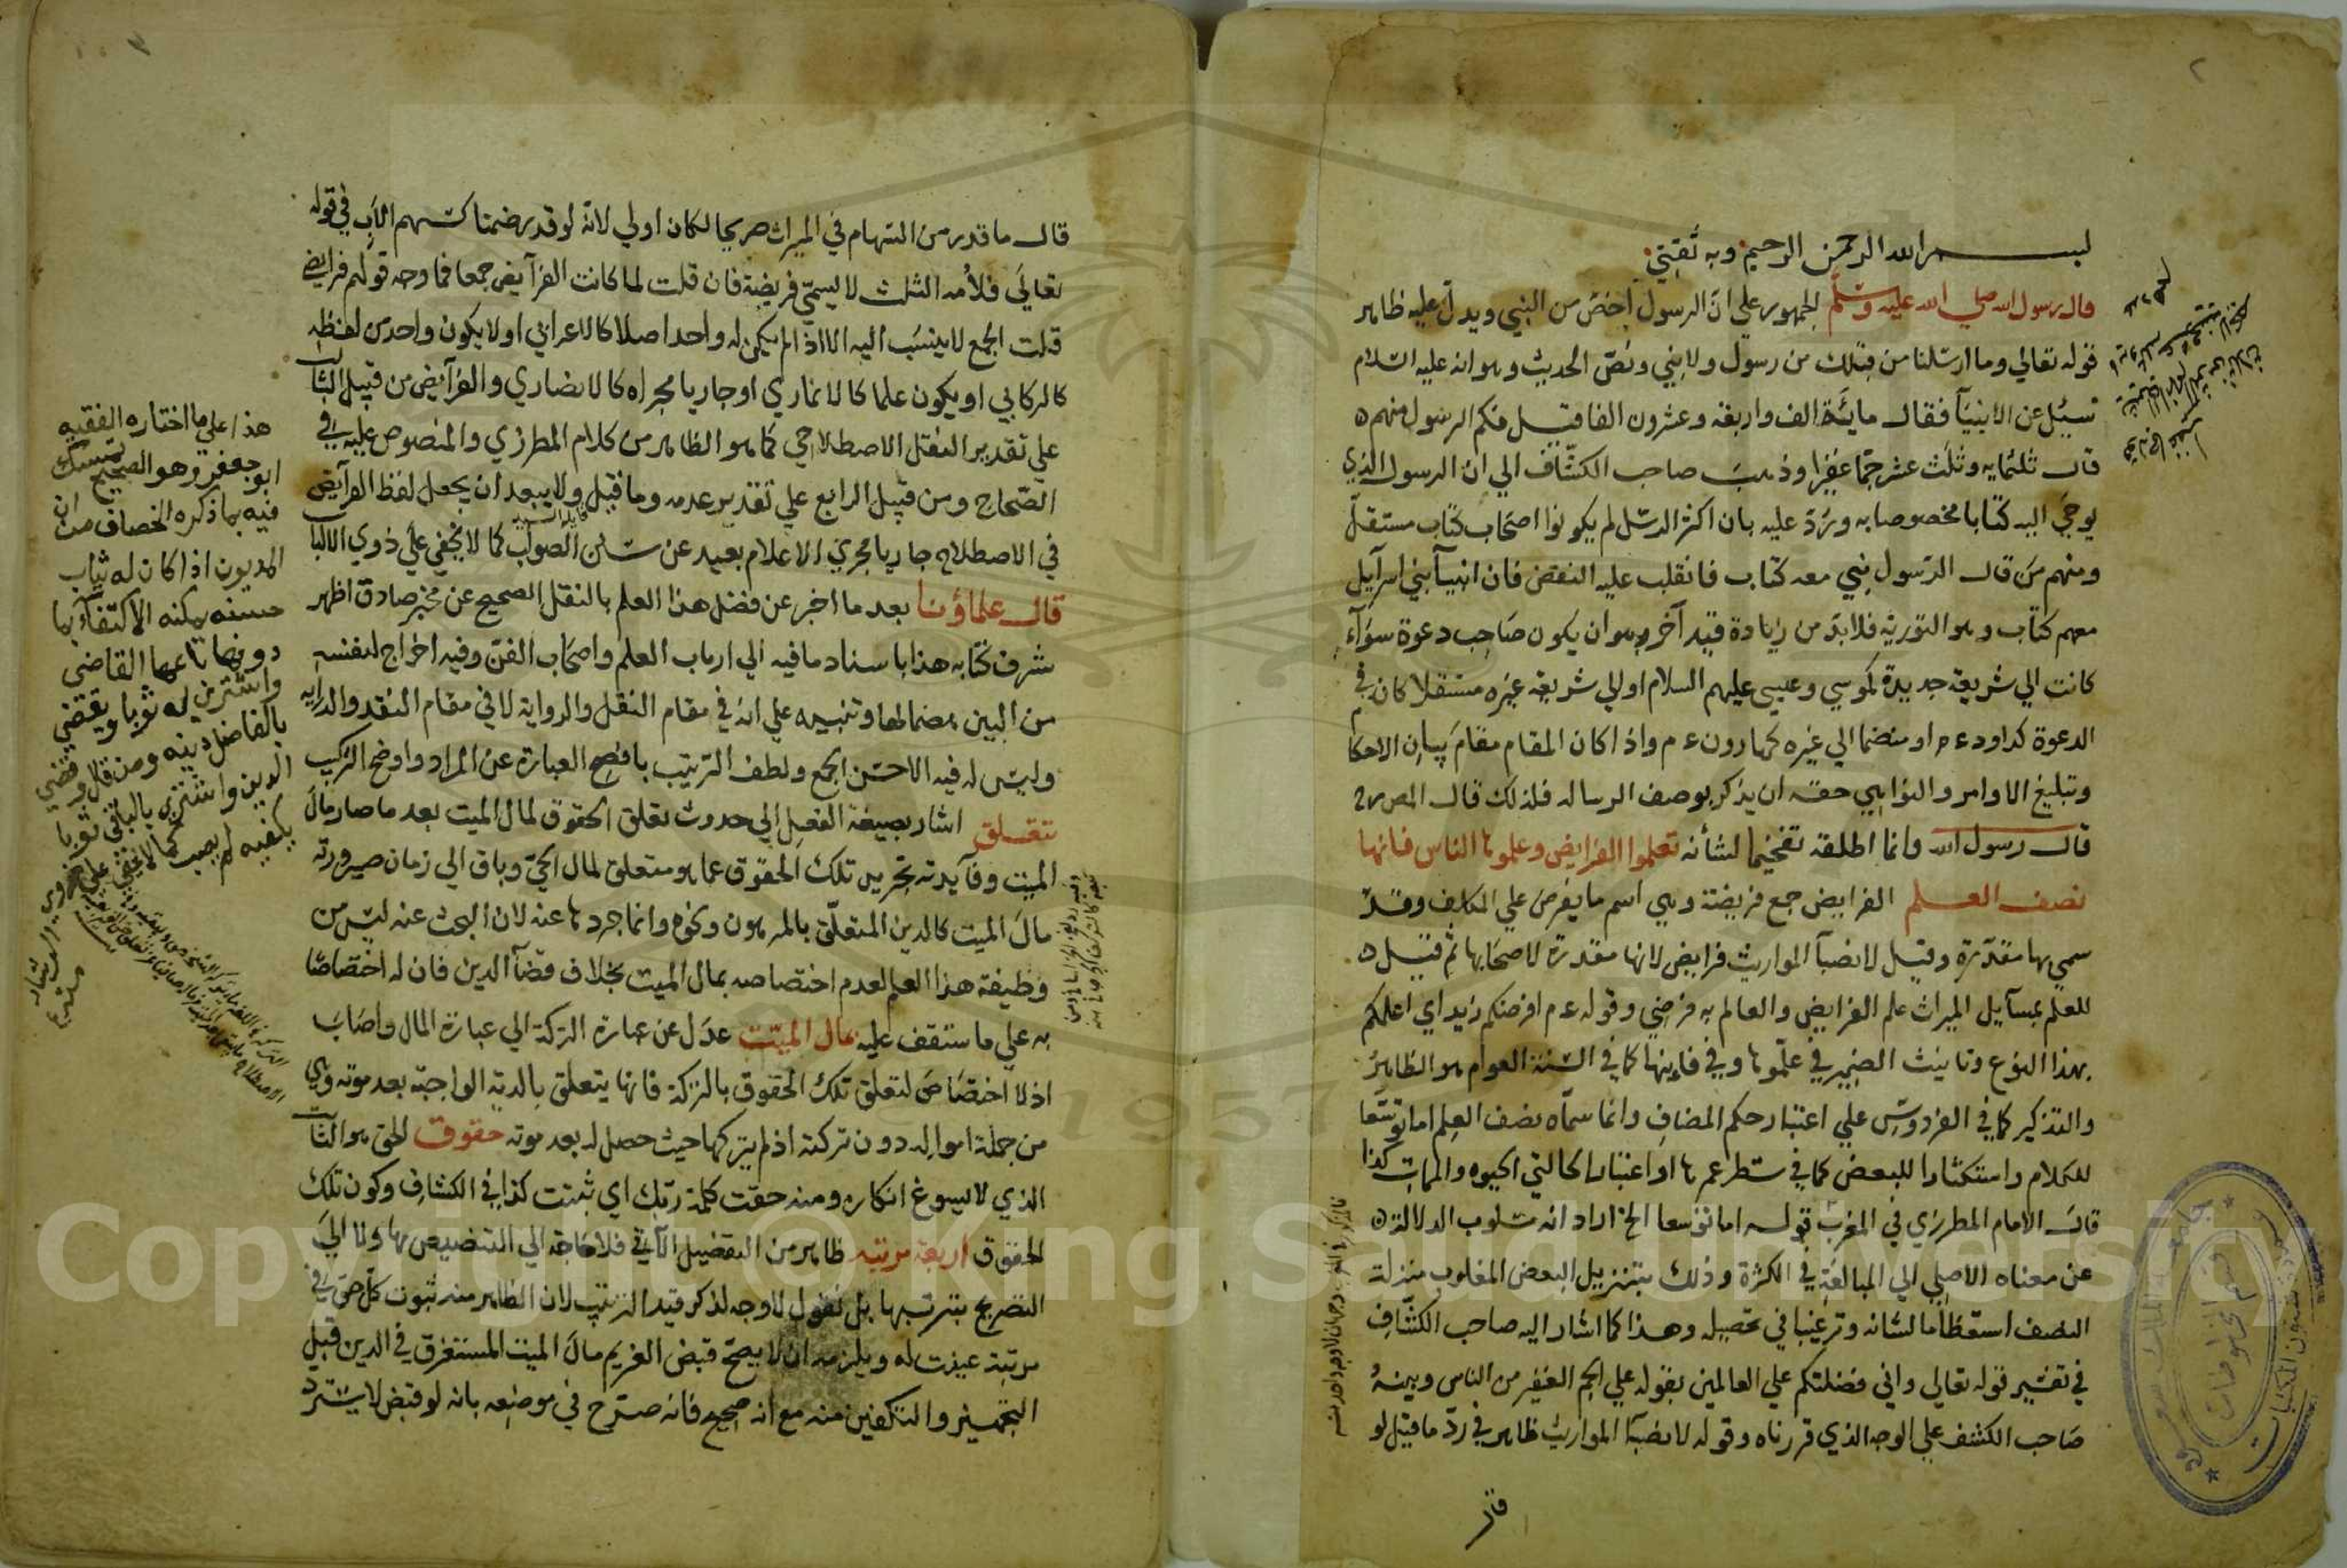 بسم الله الرحمن الرحيم وبه ثقتي
قال رسول الله صلي الله عليه وسلم الجمهور علي ان الرسول اخص من النبي ويدل عليه ظاهر
قوله تعالي وما ارسلنا من قبلك من رسول ولا نبي ونص الحديث وهو انه عليه السلام
سئل عن الانبيآ فقال مائة الف واربعة وعشرون الفا فقيل فكم الرسول منهم
قال ثلثمايه وثلث عشر جما غفيرا وذهب صاحب الكشاف الي ان الرسول الذي
يوحي اليه كتابا مخصوصا به ورد عليه بان اكثر الرسل لم يكونوا اصحاب كتاب مستقل
ومنهم من قال الرسول نبي معه كتاب فانقلب عليه النقض فان انبيآ بني اسرآيل
معهم كتاب وهو التورية فلا بد من زيادة قيد آخر وهو ان يكون صاحب دعوة سوآء
كانت الي شريعة جديدة كموسي وعيسي عليهم السلام او الي شريعة غيره مستقلا كان في
الدعوة كداود ع م او منضما الي غيره كهارون ع م واذا كان المقام مقام بيان الاحكا
وتبليغ الاوامر والنواهي حقه ان يذكر بوصف الرساله فلذلك قال المص
قال رسول الله وانما اطلقه تفخيما لشأنه تعلموا الفرايض وعلموها الناس فانها
نصف العلم الفرايض جمع فريضة وهي اسم ما يفرض علي المكلف وقد
سمي بها مقدرة وقيل لانصبآ المواريث فرايض لانها مقدرة لاصحابها ثم قيل
للعلم بمسآيل الميراث علم الفرايض والعالم به فرضي وقوله ع م افرضكم زيد اي اعلمكم
بهذا النوع وتانيث الضمير في علموها وفي فانها كما في السنة العوام هو الظاهر
والتذكير كما في الفردوس علي اعتبار حكم المضاف وانما سماه نصف العلم اما توسعا
للكلام واستكثارا للبعض كما في شطر عمرها او اعتبارا لحالتي الحيوة والممات كذا
قال الامام المطرزي في المغرب قوله اما توسعا الخ اراد انه مسلوب الدلالة
عن معناه الاصلي الي المبالغة في الكثرة وذلك بتنزيل البعض المغلوب منزلة
النصف استعظاما لشانه وترغيبا في تحصيله وهذا كما اشار اليه صاحب الكشاف
في تفسير قوله تعالي واني فضلتكم علي العالمين بقوله علي الجم الغفير من الناس وبينه
صاحب الكشف علي الوجه الذي قررناه وقوله لانصبآ المواريث ظاهر في رد ما قيل لو
قال
قال ما قدر من السهام في الميراث صريحا لكان اولي لانه لو قدر ضمنا كسهم الاب في قوله
تعالي فلأمه الثلث لا يسمي فريضة فان قلت لما كانت الفرآيض جمعا فما وجه قولهم فرايضي
قلت الجمع لا ينسب اليه الا اذا لم يكن له واحد اصلا كالاعرابي او لا يكون واحد من لفظه
كالركابي او يكون علما كالانماري او جاريا مجراه كالانصاري والفرآيض من قبيل الثا
علي تقدير النقل الاصطلاحي كما هو الظاهر من كلام المطرزي والمنصوص عليه في
الصحاح ومن قبيل الرابع علي تقدير عدمه وما قيل ولا يبعد ان يجعل لفظ الفرآيض
في الاصطلاح جاريا مجري الاعلام بعيد عن سنن الصواب كما لا يخفي علي ذوي الالبا
قال علماؤنا بعد ما اخبر عن فضل هذا العلم بالنقل الصحيح عن مخبر صادق اظهر
شرف كتابه هذا باسناد ما فيه الي ارباب العلم واصحاب الفن وفيه اخراج لنفسه
من البين هضما لها وتنبيه علي انه في مقام النقل والرواية لا في مقام النقد والدرايه
وليس له فيه الا حسن الجمع ولطف الترتيب بافصح العبارة عن المراد واوضح التركيب
تتعلق اشار بصيغة الفعل الي حدوث تعلق الحقوق لمال الميت بعد ما صار مال
الميت وفآيدته تجريد تلك الحقوق عما هو متعلق لمال الحي وباق الي زمان صيرورته
مال الميت كالدين المتعلق بالمرهون ونحوه وانما جردها عنه لان البحث عنه ليس من
وظيفة هذا العلم لعدم اختصاصه بمال الميت بخلاف قضآ الدين فان له اختصاصا
به علي ما ستقف عليه بمال الميت عدل عن عبارة التركة الي عبارة المال واصاب
اذ لا اختصاص لتعلق تلك الحقوق بالتركة فانها يتعلق بالدية الواجبة بعد موته وهي
من جملة امواله دون تركته اذ لم يتركها حيث حصل له بعد موته حقوق الحق هو الثا
الذي لا يسوغ انكاره ومنه حقت كلمة ربك اي ثبتت كذا في الكشاف وكون تلك
الحقوق اربعة مرتبه ظاهر من التفصيل الآتي فلا حاجة الي التنصيص بها ولا الي
التصريح بترتبها بل نقول لا وجه لذكر قيد الترتيب لان الظاهر منه ثبوت كل حق في
مرتبة عينت له ويلزمه ان لا يصح قبض الغريم مال الميت المستغرق في الدين قبل
التجهيز والتكفين منه مع انه صحيح فانه صرح في موضعه بانه لو قبض لا يسترد
هذا علي ما اختاره الفقيه
ابو جعفر وهو الصحيح تمسك
فيه بما ذكره الخصاف من ان
المديون اذا كان له ثياب
حسنه يمكنه الاكتفآء بما
دونها باعها القاضي
واشتري له ثوبا ويقضي
بالفاضل دينه ومن قال يقضي
الدين واشتري بالباقي ثوبا
يكفيه لم يصب كما لا يخفي علي
ذوي الرشاد
Copyright © King Saud University
1957